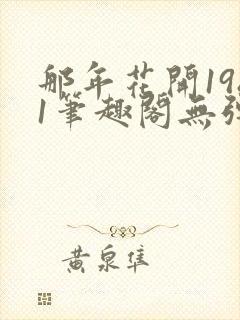 那年花開19
1筆趣閣無
黃泉隼